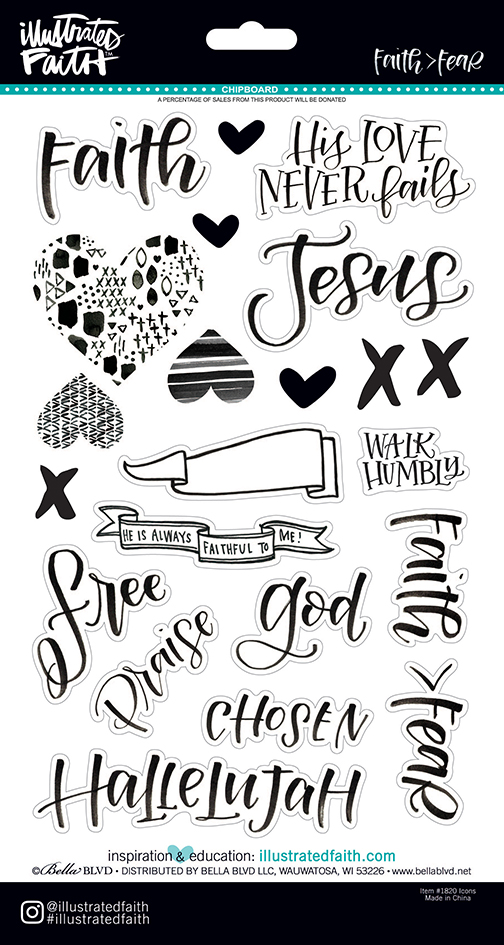 illustrated
FAITH™
Faith > Fear
CHIPBOARD
A PERCENTAGE OF SALES FROM THIS PRODUCT WILL BE DONATED
Faith
His LOVE
NEVER fails
Jesus
X X
WALK
HUMBLY
X
HE IS ALWAYS FAITHFUL TO ME!
Free
God
Faith > Fear
Praise
CHOSEN
HALLELUJAH
inspiration & education: illustratedfaith.com
©Bella BLVD • DISTRIBUTED BY BELLA BLVD LLC, WAUWATOSA, WI 53226 • www.bellablvd.net
Item #1820 Icons
Made in China
@illustratedfaith
#illustratedfaith